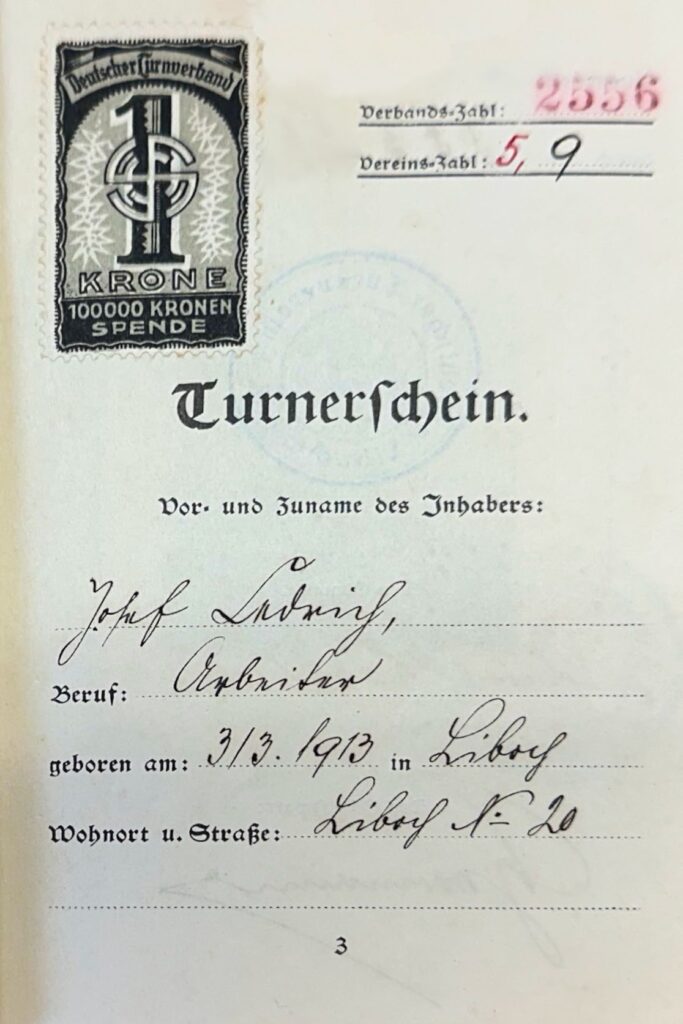 Deutscher Turnverband
1
KRONE
100000 KRONEN
SPENDE
Verbands-Zahl: 2556
Vereins-Zahl: 5, 9
Turnerschein.
Vor- und Zuname des Inhabers:
Josef Ledrich,
Beruf: Arbeiter
geboren am: 3/3. 1913 in Liboch
Wohnort u. Straße: Liboch No 20
3